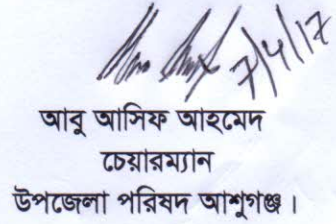 7/4/17
আবু আসিফ আহমেদ
চেয়ারম্যান
উপজেলা পরিষদ আশুগঞ্জ।